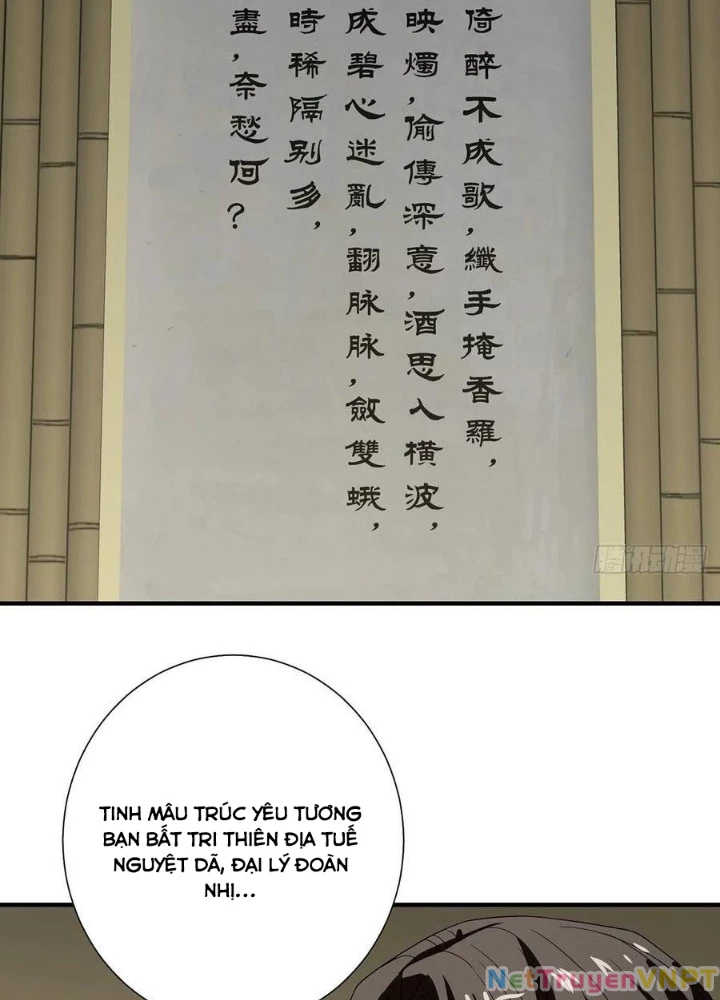 倚醉不成歌,纖手掩香羅,
映燭,偷傳深意,酒思入橫波,
成碧心迷亂,翻脉脉,斂雙蛾,
時稀隔别多,
盡,奈愁何?
腾讯动漫
TINH MÂU TRÚC YÊU TƯƠNG
BẠN BẤT TRI THIÊN ĐỊA TUẾ
NGUYỆT DÃ, ĐẠI LÝ ĐOÀN
NHỊ...
NetTruyenVNPT